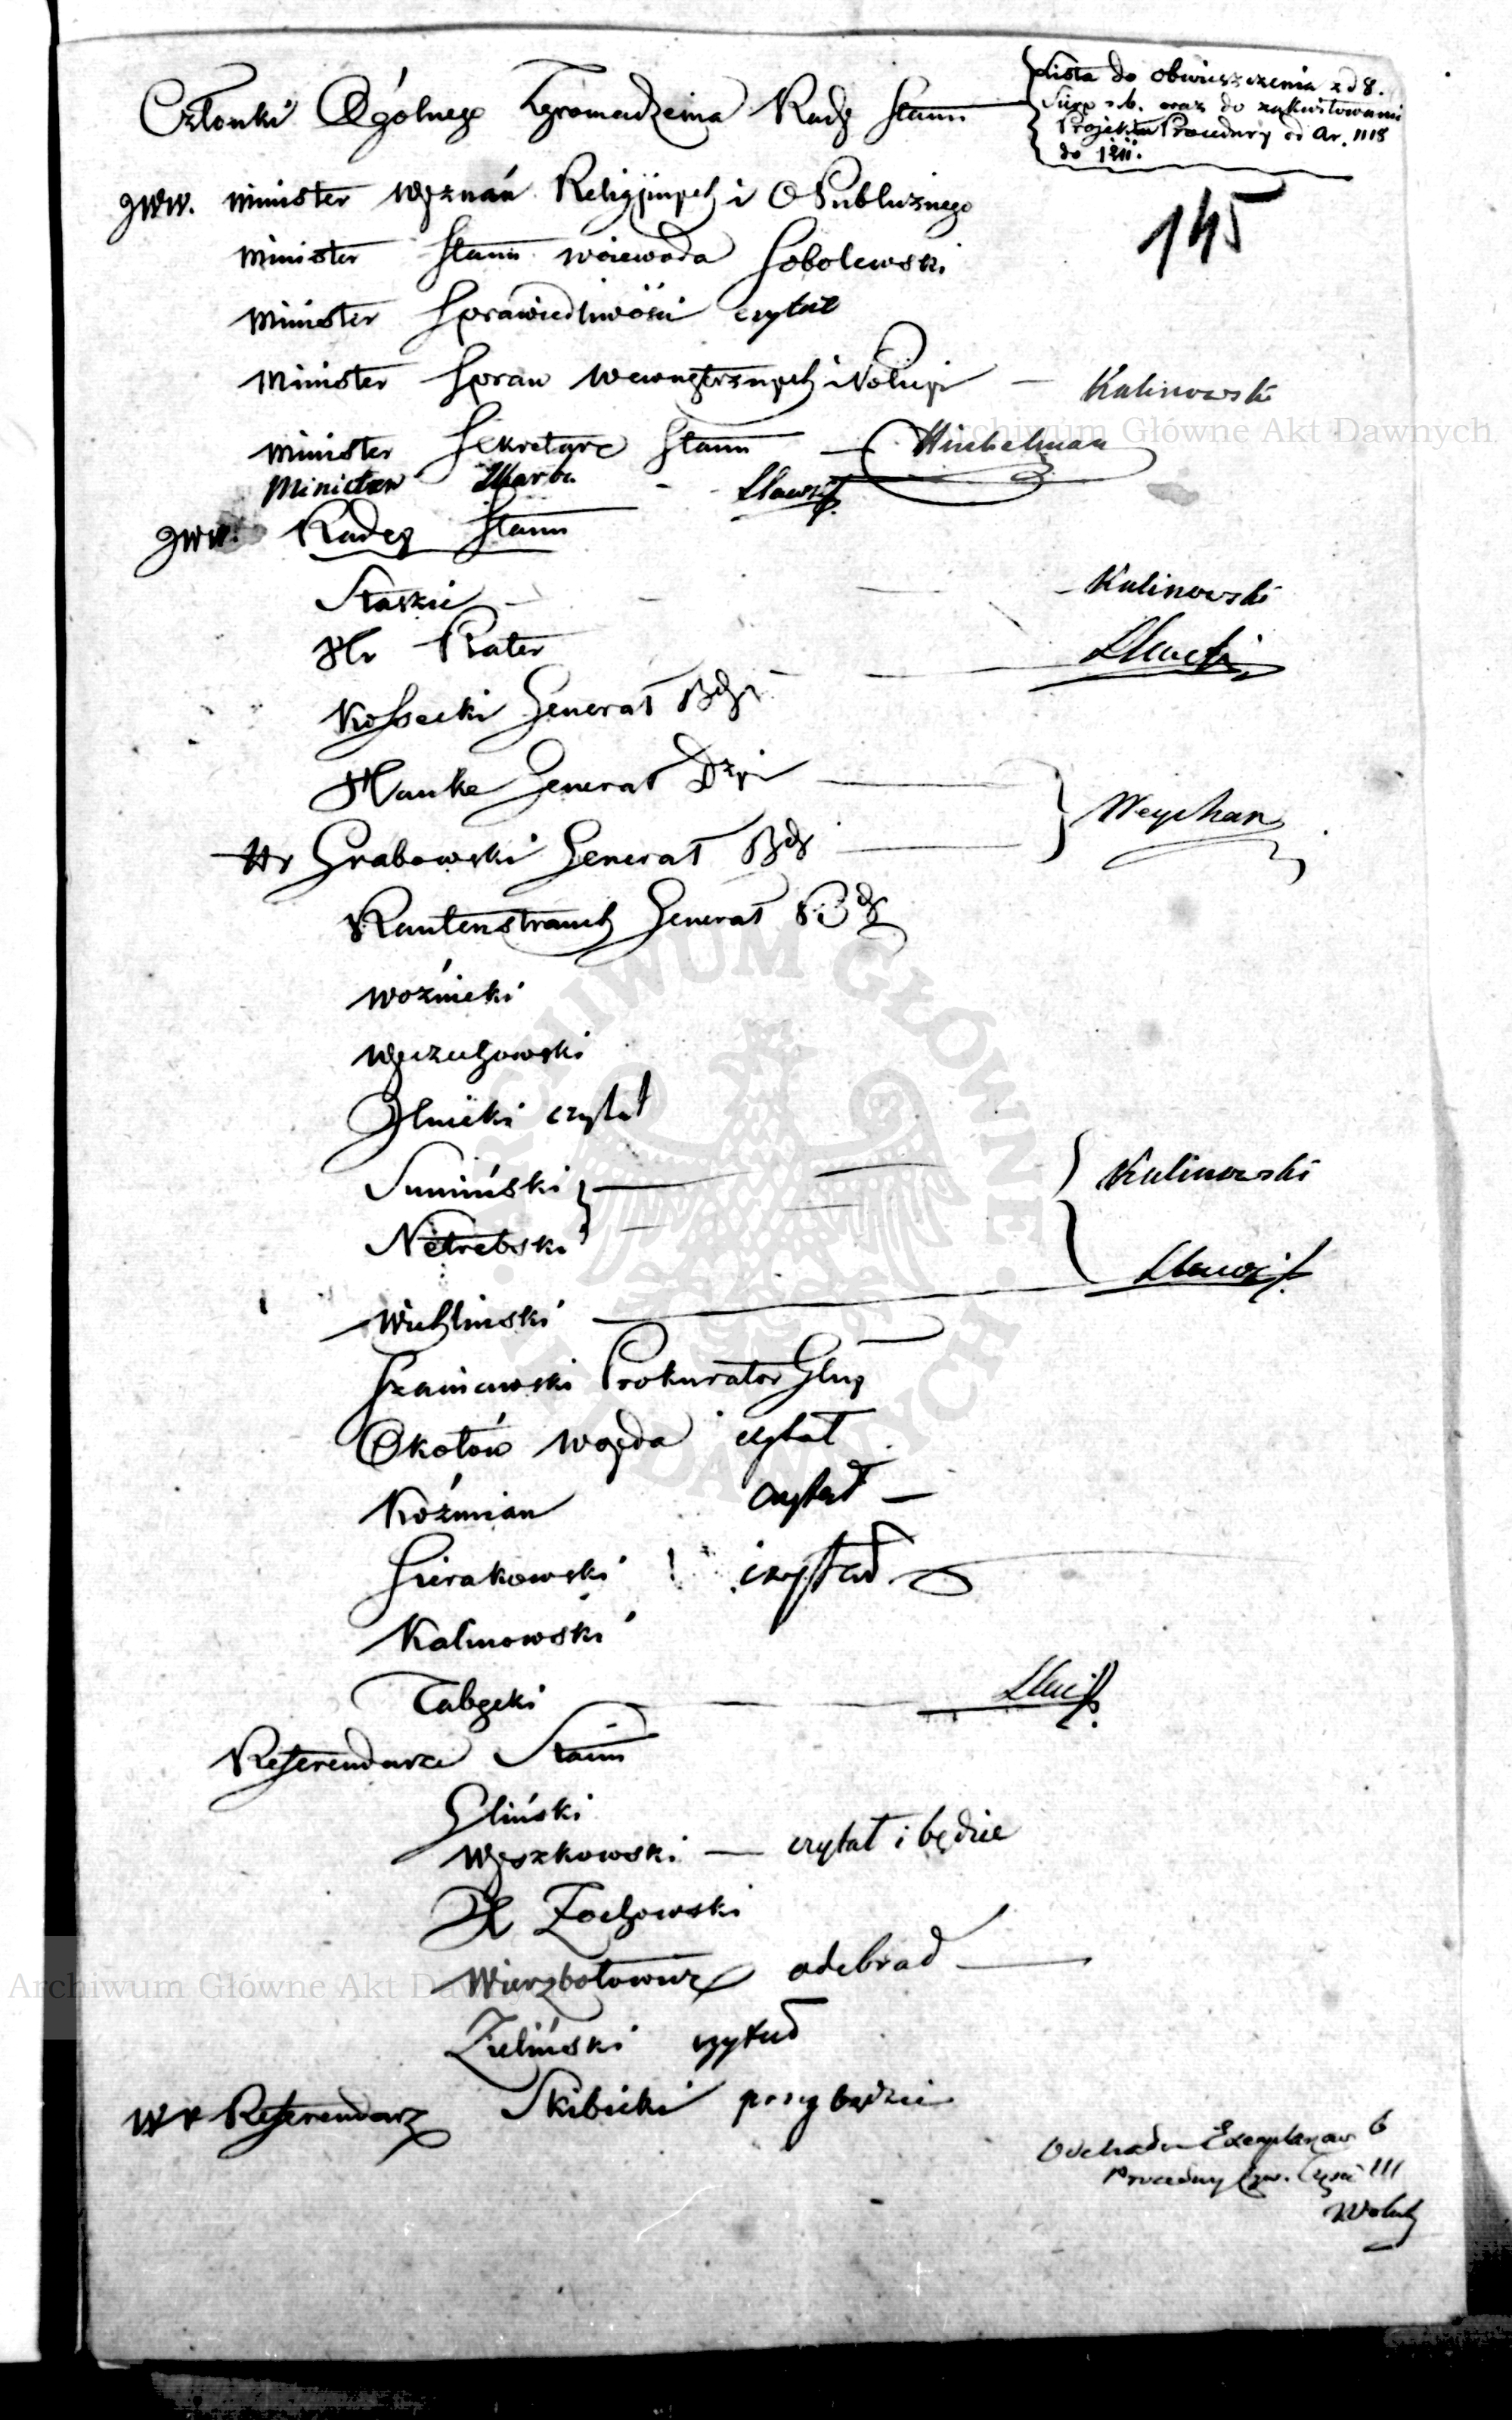 Członki Ogólnego Zgromadzenia Rady Stanu
Lista do obwieszczenia z d 8.
r. b. oraz do zakwitowania
Projektu Procedury od Ar. 1118
do 1211.
145
JWW. Minister Wyznań Religijnych i O Publicznego
Minister Stanu Woiewoda Sobolewski
Minister Sprawiedliwości czytał
Minister Spraw Wewnętrznych i Policyi — Kalinowski
Minister Sekretarz Stanu — Hinkelman
Minister Skarbu - -
JWW. Radcy Stanu
Staszic - - — Kalinowski
Hr Plater
Kossecki Generał Bdy
Hauke Generał Dzyi —
Weychan
Hr Grabowski Generał Bdy —
Rautenstrauch Generał Bdy
Woźnicki
Wyczechowski
Jlnicki czytał
Sumiński — Kalinowski
Netrebski
Wichliński —
Szaniawski Prokurator Glny
Okołow Woyda czytał
Koźmian czytał —
Sierakowski czytał
Kalinowski
Tabęcki —
Referendarze Stanu
Gliński
Wyszkowski — czytał i będzie
X Żochowski
Wierzbołowicz odebrał —
Zieliński czytał
W Referendarz Skibicki przybędzie
Exemplarzow 6
Procedury Cyw. Części III